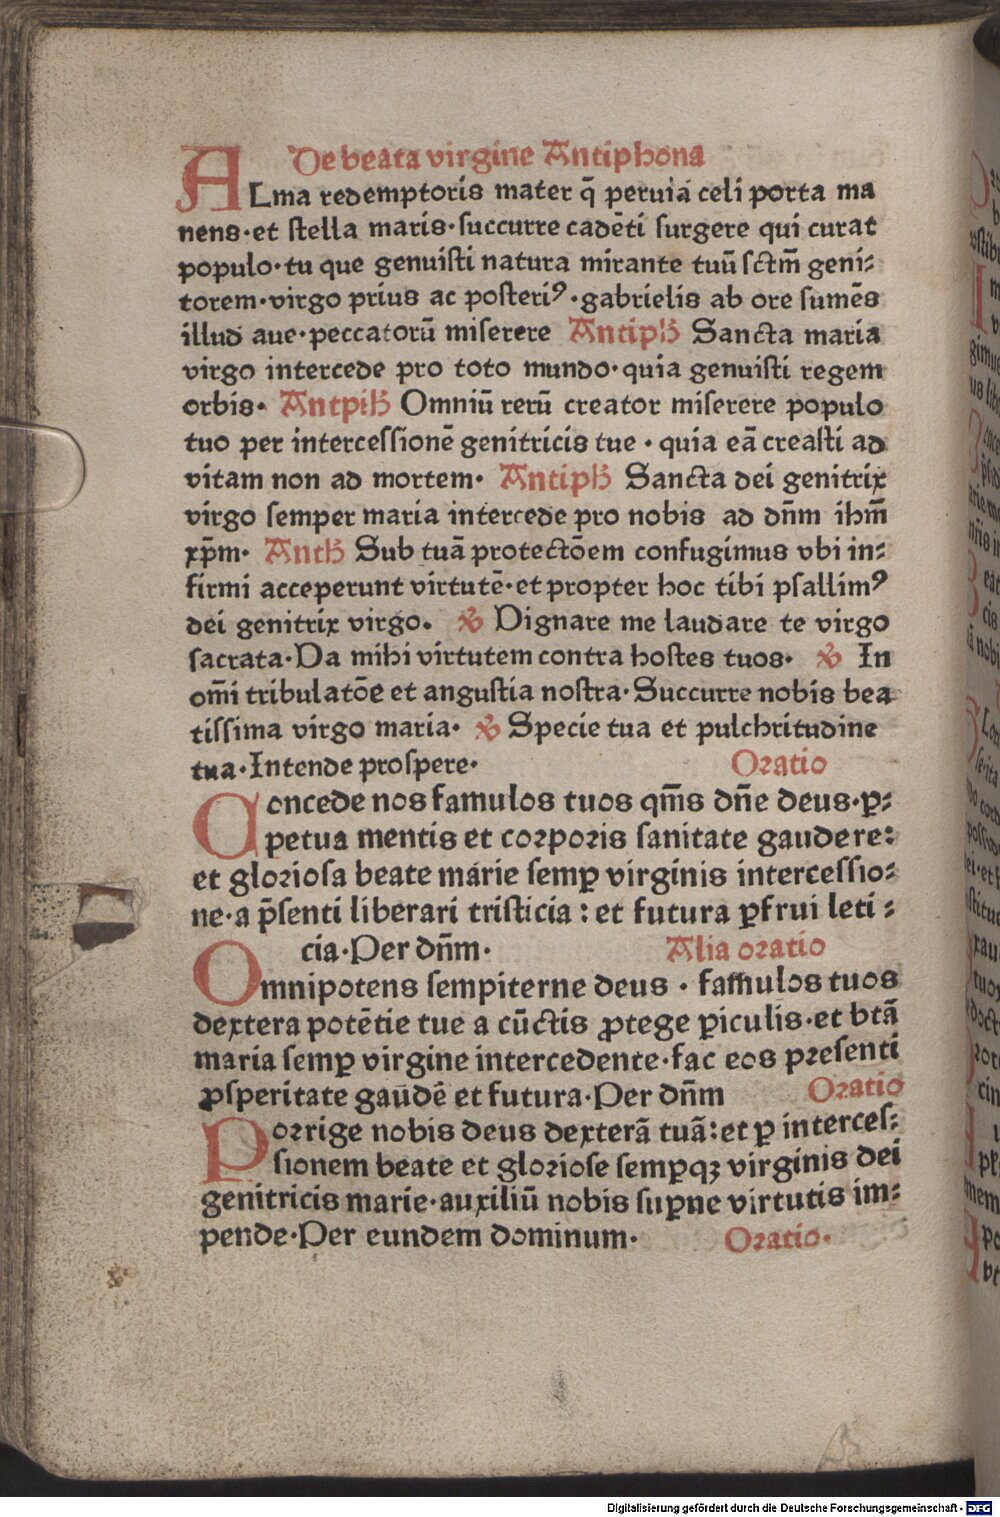 De beata virgine Antiphona
ALma redemptoris mater q̄ peruiā celi porta ma
nens·et ſtella maris·ſuccurre cadēti ſurgere qui curat
populo·tu que genuiſti natura mirante tuū ſctm̄ geni⸗
torem·virgo prius ac poſteriꝰ·gabrielis ab ore ſumēs
illud aue·peccatorū miſerere Antiph̄ Sancta maria
virgo intercede pro toto mundo·quia genuiſti regem
orbis· Antpih̄ Omniū rerū creator miſerere populo
tuo per interceſſionē genitricis tue · quia eā creaſti ad
vitam non ad mortem· Antiph̄ Sancta dei genitrix
virgo ſemper maria intercede pro nobis ad dn̄m ihm̄
xp̄m· Anth̄ Sub tuā protectōem confugimus vbi in⸗
firmi acceperunt virtutē·et propter hoc tibi pſallimꝰ
dei genitrix virgo. ℣ Dignare me laudare te virgo
ſacrata·Da mihi virtutem contra hoſtes tuos· ℣ In
om̄i tribulatōe et anguſtia noſtra·Succurre nobis bea
tiſſima virgo maria· ℣ Specie tua et pulchritudine
tua·Intende proſpere· Oratio
Concede nos famulos tuos qm̄s dn̄e deus·ꝑ⸗
petua mentis et corporis ſanitate gaudere:
et glorioſa beate marie ſemꝑ virginis interceſſio⸗
ne·a p̄ſenti liberari triſticia : et futura ꝑfrui leti ⸗
cia·Per dn̄m· Alia oratio
Omnipotens ſempiterne deus · famulos tuos
dextera potētie tue a cūctis ꝓtege ꝑiculis·et btā
maria ſemꝑ virgine intercedente·fac eos preſenti
ꝓſperitate gaudē et futura·Per dn̄m Oratio
Porrige nobis deus dexterā tuā:et ꝑ interceſ⸗
ſionem beate et glorioſe ſemꝑqꝫ virginis dei
genitricis marie·auxiliū nobis ſuꝑne virtutis im⸗
pende·Per eundem dominum· Oratio·
Digitalisierung gefördert durch die Deutsche Forschungsgemeinschaft - DFG